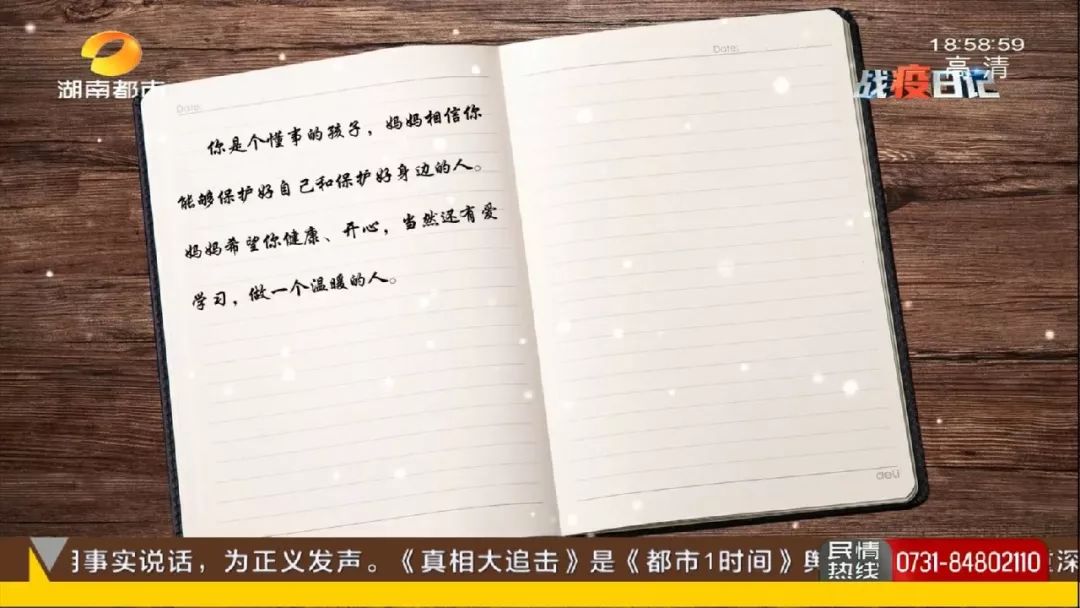 湖南都市
18:58:59
高清
战疫日记
Date:
Date:
你是个懂事的孩子，妈妈相信你
能够保护好自己和保护好身边的人。
妈妈希望你健康、开心，当然还有爱
学习，做一个温暖的人。
deli
事实说话，为正义发声。《真相大追击》是《都市1时间》舆
民情
热线
0731-84802110
深